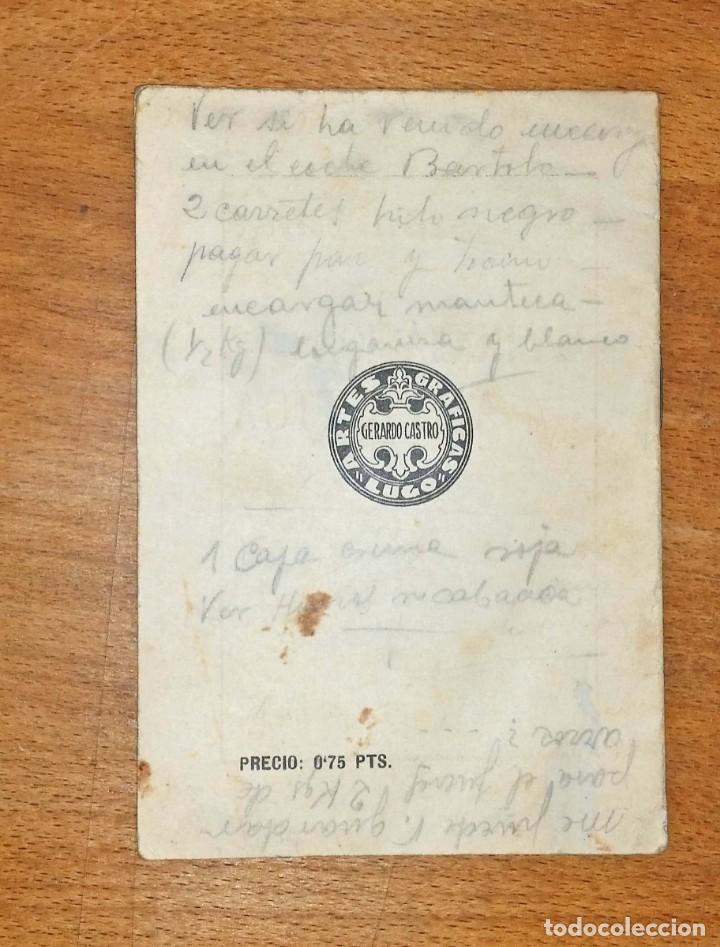 Ver si ha venido encarg
en el coche Bartolo —
2 carretes hilo negro —
pagar pan y —
encargar manteca —
(1/2 Kg) y blanco
ARTES GRAFICAS
GERARDO CASTRO
"LUGO"
1 Caja crema roja
Ver
PRECIO: 0'75 PTS.
me puede V. guardar
para el jueves 2 Kgs de
arroz?
todocoleccion.net